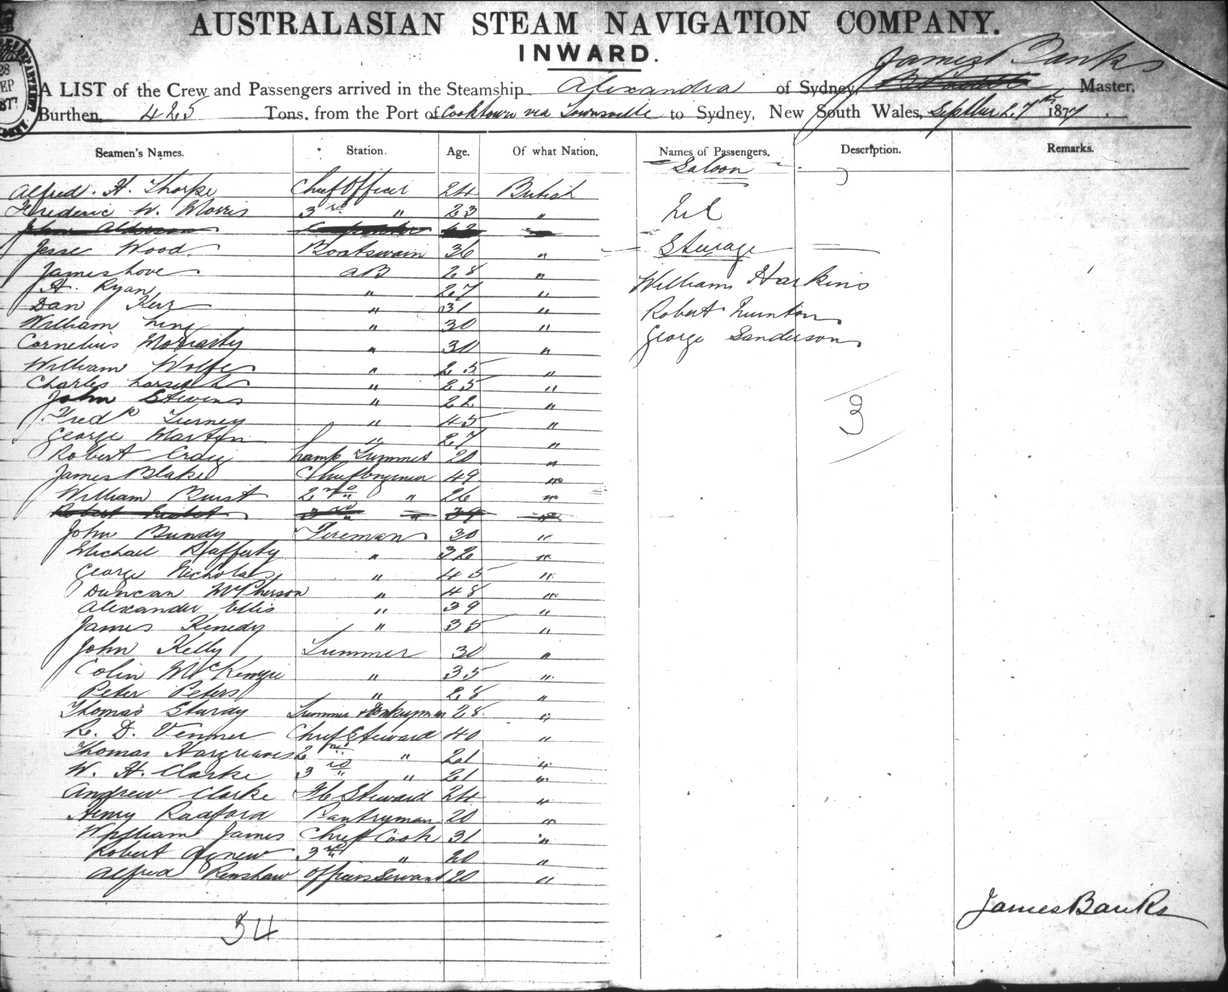 AUSTRALASIAN STEAM NAVIGATION COMPANY.
INWARD.
James Banks
A LIST of the Crew and Passengers arrived in the Steamship Alexandra of Sydney, Master,
Burthen, 425 Tons, from the Port of Cooktown via Townsville to Sydney, New South Wales, Septber 27th 1877
Seamen's Names. Station. Age. Of what Nation. Names of Passengers. Description. Remarks.
Saloon
Alfred. H. Thorpe Chief Officer 24 British
Frederic W. Morris 3rd " 23 "
Nil
John Alderson Carpenter 42 "
Jesse Wood. Boatswain 36 "
Steerage
James Love AB 28 "
H. Ryan " 27 "
William Harkins
Dan Kerr " 31 "
Robert Nunton
William " 30 "
George Sanderson
Cornelius Moriarty " 30 "
William Wolfe " 25 "
Charles " 25 "
John Stevens " 22 "
3
Fredk Turney " 45 "
George Martyn " 27 "
Robert Craig Lamp Trimmer 20 "
James Blake Chief Engineer 49 "
William Burst 2nd " 26 "
Robert 3rd " 39 "
John Bundy Fireman 30 "
Michael Rafferty " 32 "
George Nicholas " 45 "
Duncan McPherson " 48 "
Alexander Ellis " 39 "
James Kenedy " 35 "
John Kelly Trimmer 30 "
Colin McKenzie " 35 "
Peter Peters " 28 "
Thomas Sturdy Trimmer & Donkeyman 28 "
R. D. Venner Chief Steward 40 "
Thomas Hargreaves 2nd " 21 "
W. H. Clarke 3rd " 21 "
Andrew Clarke Steward 24 "
Henry Radford Pantryman 20 "
William James Chief Cook 31 "
Robert Agnew 3rd " 20 "
Alfred Renshaw Officers Servant 20 "
James Banks
34